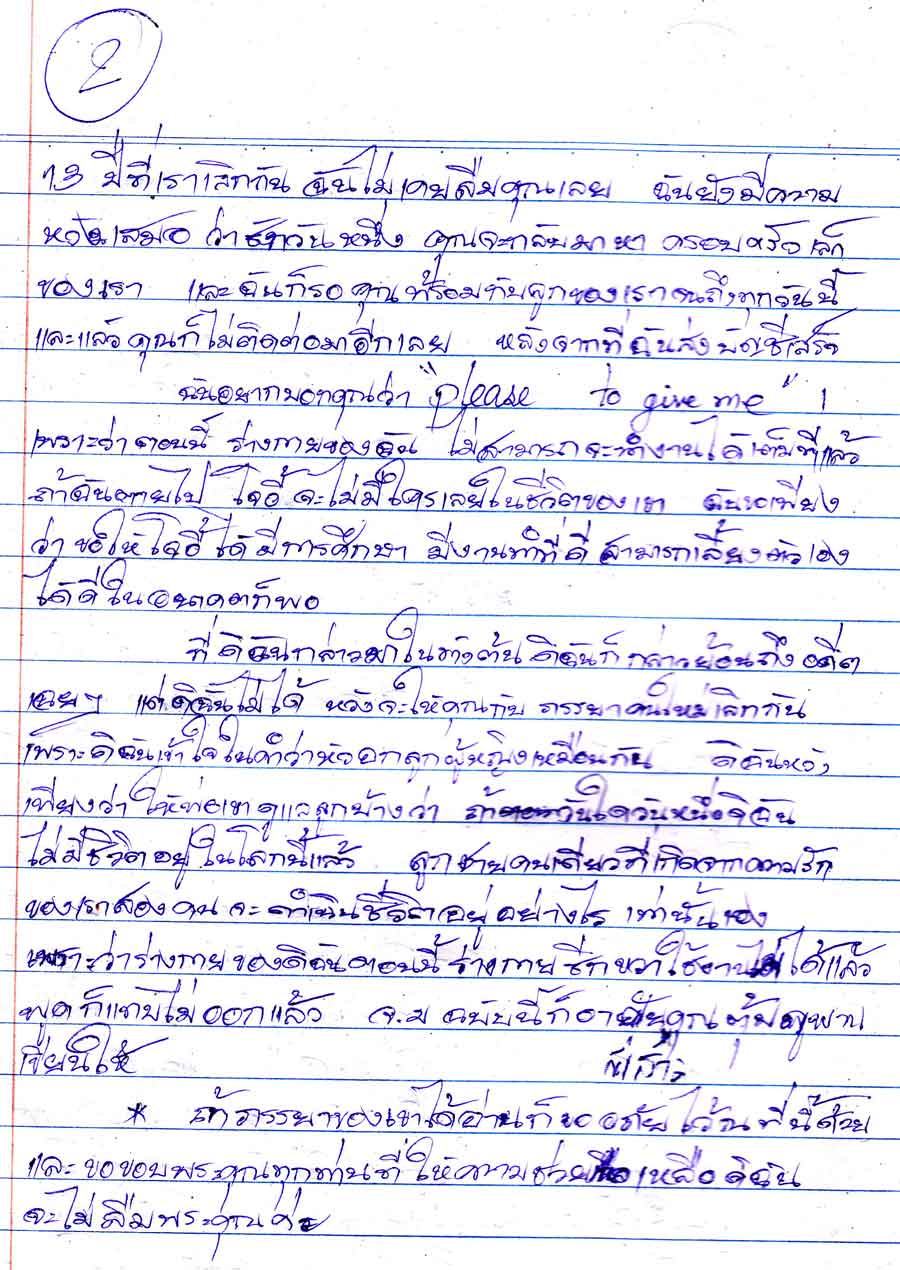 2
13 ปีที่เราเลิกกัน ฉันไม่เคยลืมคุณเลย ฉันยังมีความ
หวังเสมอ ว่าสักวันหนึ่ง คุณจะกลับมาหา ครอบครัวเล็ก
ของเรา และฉันก็รอคุณพร้อมกับลูกของเราจนถึงทุกวันนี้
และแล้วคุณก็ไม่ติดต่อมาอีกเลย หลังจากที่ฉันส่งบัญชีเสร็จ
ฉันอยากบอกคุณว่า "please to give me" !
เพราะว่าตอนนี้ ร่างกายของฉัน ไม่สามารถจะทำงานได้เต็มที่แล้ว
ถ้าฉันตายไป โจอี้จะไม่มีใครเลยในชีวิตของเขา ฉันขอเพียง
ว่าขอให้โจอี้ได้มีการศึกษา มีงานทำที่ดี สามารถเลี้ยงตัวเอง
ได้ดีในอนาคตก็พอ
ที่ดิฉันกล่าวมาในข้างต้นดิฉันก็กล่าวย้อนถึงอดีต
เฉยๆ แต่ดิฉันไม่ได้ หวังจะให้คุณกับ ภรรยาคนใหม่เลิกกัน
เพราะดิฉันเข้าใจในคำว่าหัวอกลูกผู้หญิงเหมือนกัน ดิฉันหวัง
เพียงว่าให้พ่อเขาดูแลลูกบ้างว่า ถ้าวันใดวันหนึ่งดิฉัน
ไม่มีชีวิตอยู่ในโลกนี้แล้ว ลูกชายคนเดียวที่เกิดจากความรัก
ของเราสองคน จะดำเนินชีวิตอยู่อย่างไร เท่านั้นเอง
เพราะว่าร่างกายของดิฉันตอนนี้ร่างกายซีกขวาใช้งานไม่ได้แล้ว
พูดก็แทบไม่ออกแล้ว จ.ม ฉบับนี้ก็อาศัยคุณ
เขียนให้
* ถ้าภรรยาของเขาได้อ่านก็ขออภัยไว้ณที่นี้ด้วย
และขอขอบพระคุณทุกท่านที่ให้ความช่วยเหลือดิฉัน
จะไม่ลืมพระคุณค่ะ